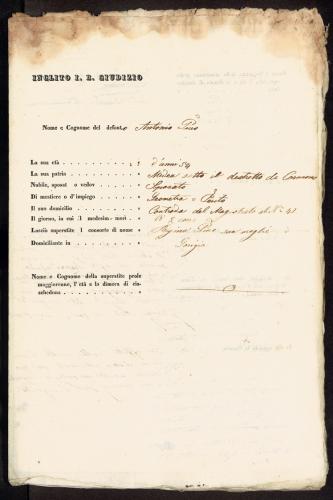 INCLITO I. R. GIUDIZIO
Nome e Cognome del defonto Antonio Pino
La sua età d'anni 54
La sua patria Medea sotto il distretto de Cormons
Nubile, sposat o vedov Sposato
Di mestiere o d'impiego Geometra e Perito
Il suo domicilio Contrada del N.
Il giorno, in cui il medesim morì
Lasciò superstite l consorte di nome Regina Pino sua moglie
Domiciliante in
Nome e Cognome della superstite prole
maggiorenne, l'età e la dimora di cia-
schedun